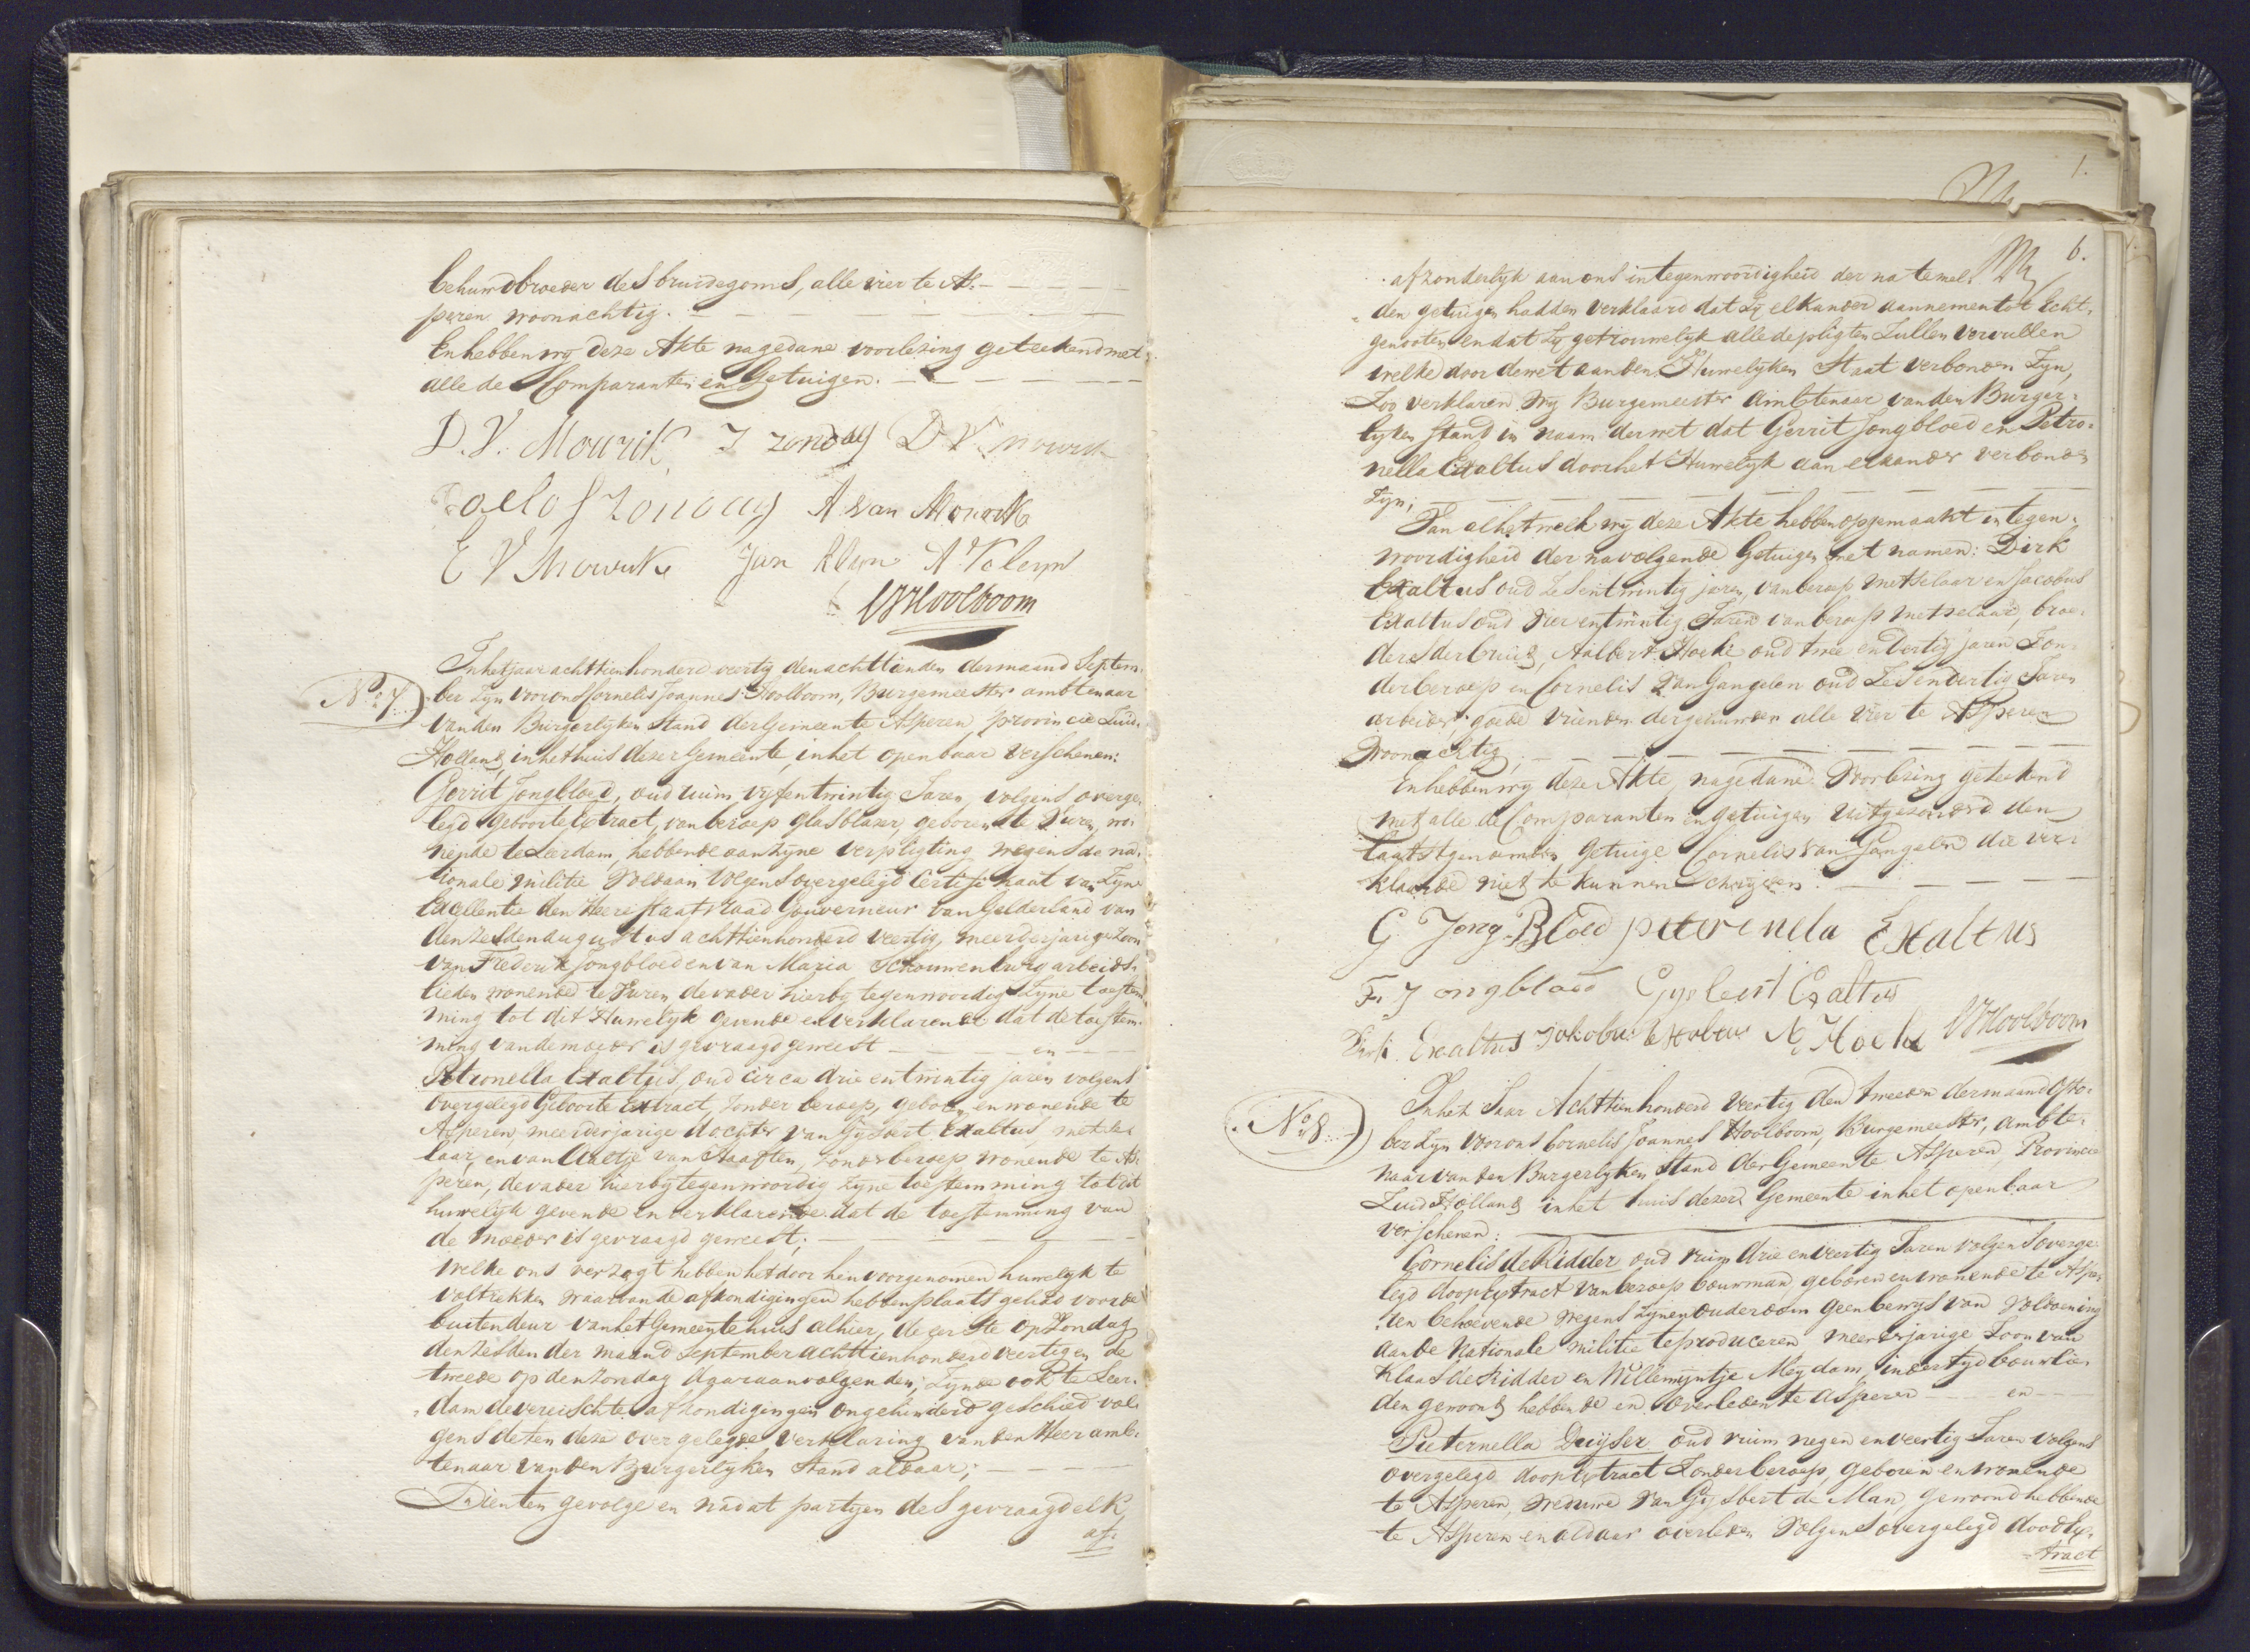 behuwdbroeder des bruidegoms, alle vier te As-
peren woonachtig.
En hebben wy deze Akte na gedane voorlezing geteekend met
alle de Comparanten en Getuigen.
D. V. Mourik J zondag D V mourik
Roelof zondag A van Mourik
E V Mourik Jan Kleyn A Kleyn
CJHoolboom
No. 7.
In het jaar achttienhonderd veertig den achttienden der maand Septem-
ber zyn voor ons Cornelis Joannes Hoolboom, Burgemeester ambtenaar
van den Burgerlyken Stand der Gemeente Asperen provincie Zuid-
Holland, in het huis dezer Gemeente, in het openbaar verschenen:
Gerrit Jongbloed, oud ruim vyfentwintig Jaren, volgens overge-
legd geboorte Extract, van beroep glasblazer, geboren te Buren, wo-
nende te Leerdam, hebbende aan zyne verpligting wegens de na-
tionale militie voldaan volgens overgelegd Certifikaat van Zyne
Excellentie den Heere Staatsraad Gouverneur van Gelderland van
den zesden augustus achttienhonderd veertig, meerderjarige Zoon
van Frederik Jongbloed en van Maria Schouwenburg arbeids-
lieden wonende te Buren, de vader hierby tegenwoordig zyne toestem-
ming tot dit Huwelyk gevende en verklarende dat de toestem-
ming van de moeder is gevraagd geweest en
Petronella Exaltus, oud circa drie entwintig jaren volgens
overgelegd Geboorte Extract, zonder beroep, geboren en wonende te
Asperen, meerderjarige dochter van Gysbert Exaltus, metse-
laar, en van Aaltje van Haaften, zonder beroep wonende te As-
peren, de vader hierby tegenwoordig zyne toestemming tot dit
huwelyk gevende en verklarende dat de toestemming van
de moeder is gevraagd geweest;
Welke ons verzogt hebben het door hen voorgenomen huwelyk te
voltrekken waarvan de afkondigingen hebben plaats gehad voor de
buitendeur van het Gemeente huis alhier, de eerste op Zondag
den zesden der maand September achttienhonderd veertig en de
tweede op den zondag daaraanvolgenden, Zynde ook te Leer-
dam de vereischte afkondigingen ongehinderd geschied vol-
gens de ten deze overgelegde verklaring van den Heer amb-
tenaar van den Burgerlyken Stand aldaar;
Dien ten gevolge en nadat partyen des gevraagd elk
af-
6.
afzonderlyk aan ons in tegenwoordigheid der na te mel-
den getuigen hadden verklaard dat zy elkander aannemen tot Echt-
genooten en dat zy getrouwelyk alle de pligten zullen vervullen
welke door de wet aan den Huwelyken Staat verbonden zyn,
Zoo verklaren Wy Burgemeester Ambtenaar van den Burger-
lyken Stand in naam der wet dat Gerrit Jongbloed en Petro-
nella Exaltus door het Huwelyk aan elkander verbonden
zyn;
Van al hetwelk wy deze Akte hebben opgemaakt in tegen-
woordigheid der navolgende Getuigen met namen: Dirk
Exaltus oud zesentwintig jaren, van beroep metselaar en Jacobus
Exaltus oud vier entwintig Jaren van beroep metselaar, broe-
ders der bruid, Aalbert Hoeke oud twee endertig jaren Zon-
der beroep en Cornelis van Gangelen oud zesendertig Jaren
arbeider, goede vrienden der gehuwden alle vier te Asperen
Woonachtig,
En hebben wy deze Akte, na gedane Voorlezing geteekend
met alle de Comparanten en getuigen uitgezonderd den
laatstgenoemden Getuige Cornelis van Gangelen die ver-
klaarde niet te kunnen schryven.
G. Jong Bloed petronela Exaltus
F. Jongbloed Gysbert Exaltus
Dirk Exaltus Jakobus Exaltus A. Hoeke CJHoolboom
No. 8.
In het Jaar Achttienhonderd Veertig den tweeden der maand Octo-
ber zyn voor ons Cornelis Joannes Hoolboom, Burgemeester, ambte-
naar van den Burgerlyken Stand der Gemeente Asperen, Provincie
Zuid Holland, in het huis dezer Gemeente in het openbaar
verschenen:
Cornelis de Ridder oud ruim drie enveertig Jaren volgens overge-
legd doopextract van beroep bouwman, geboren en wonende te Aspe-
ren behoevende wegens zynen ouderdom geen bewys van voldoening
aan de Nationale militie te produceren meerderjarige Zoon van
Klaas de Ridder en Willemyntje Meydam, in der tyd bouwlie-
den gewoond hebbende en overleden te Asperen en
Pieternella Duyser oud ruim negen enveertig Jaren volgens
overgelegd doopextract Zonder beroep, geboren en wonende
te Asperen, weduwe van Gysbert de Man, gewoond hebbende
te Asperen en aldaar overleden volgens overgelegd doodex-
tract
1.